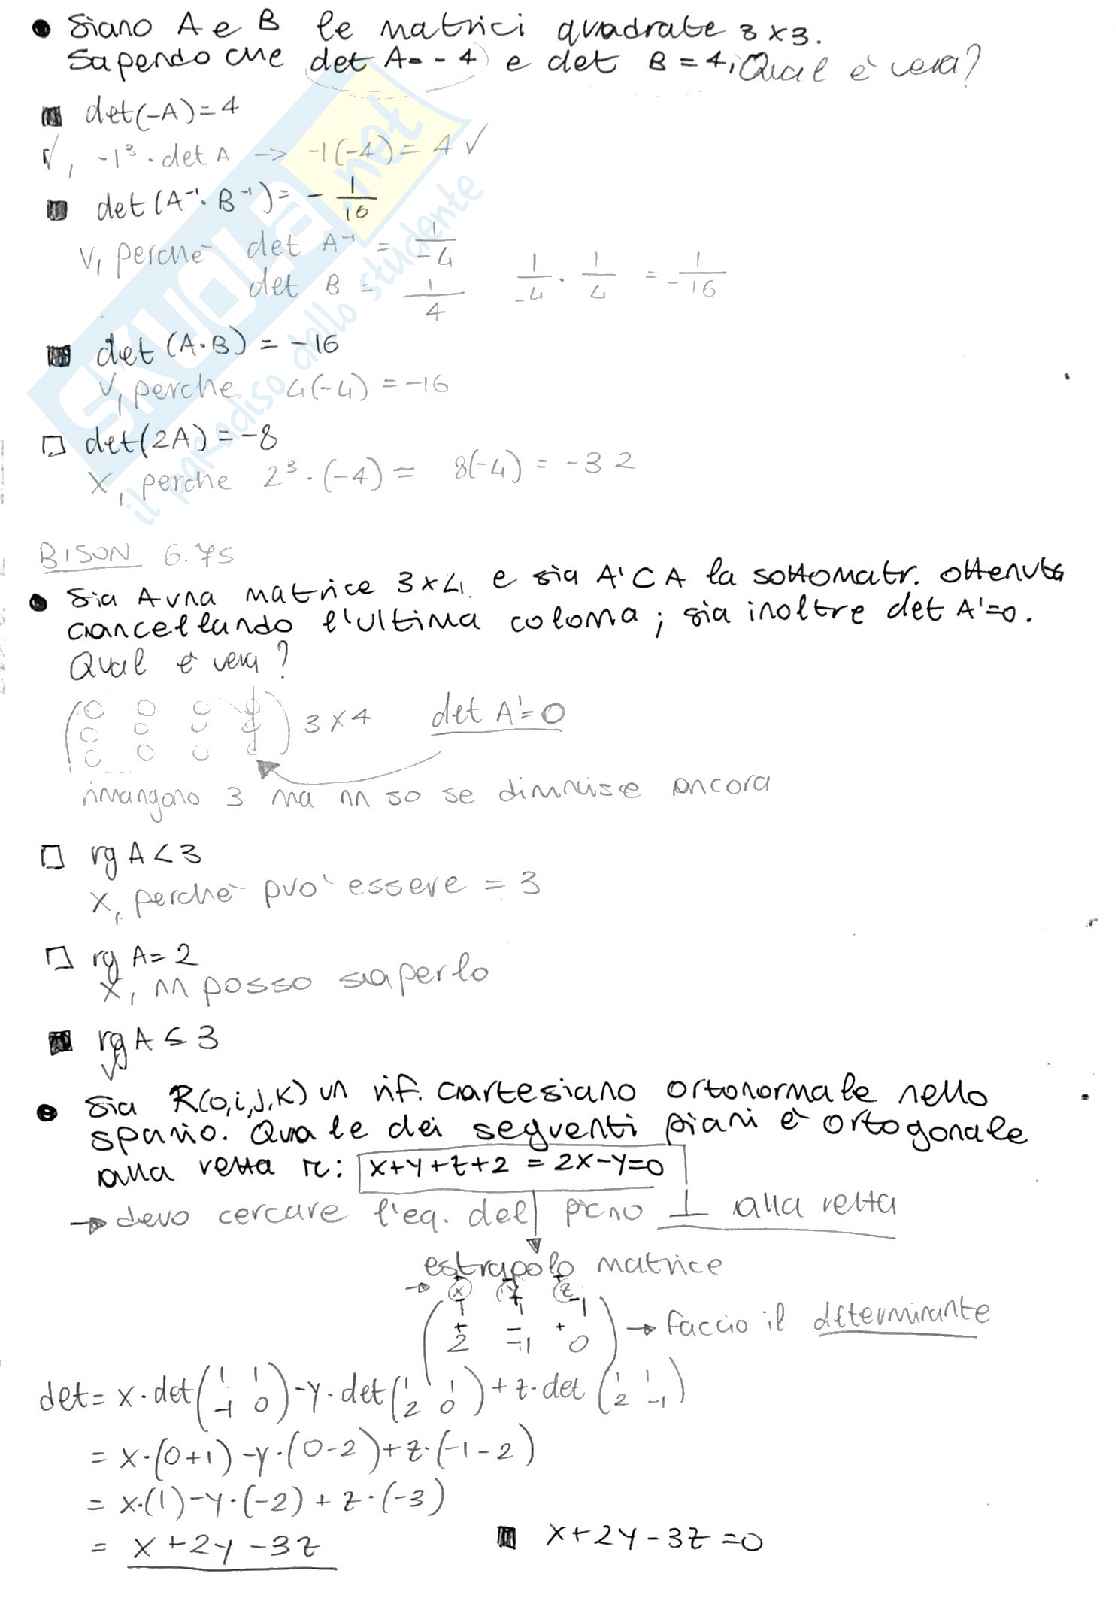 • Siano A e B le matrici quadrate 3x3.
Sapendo che det A=-4 e det B=4, Qual è vera?
■ det(-A)=4
V, -1³·det A -> -1(-4)=4 ✓
■ det(A⁻¹·B⁻¹)= - 1/16
V, perché det A⁻¹ = 1/-4
det B = 1/4   1/-4 · 1/4 = - 1/16
■ det (A·B) = -16
V, perche 4(-4) = -16
□ det(2A)=-8
X, perche 2³·(-4)= 8(-4) = -32
BISON 6.75
• Sia A una matrice 3x4 e sia A'CA la sottomatr. ottenuta
cancellando l'ultima colonna; sia inoltre det A'=0.
Qual è vera?
(0 0 0 0
0 0 0 0
0 0 0 0) 3x4   det A'=0
rimangono 3 ma nn so se diminuisce ancora
□ rg A<3
X, perché può essere = 3
□ rg A=2
X, nn posso saperlo
■ rg A ≤ 3
✓
• Sia R(o,i,j,k) un rif. cartesiano ortonormale nello
spazio. Quale dei seguenti piani è ortogonale
alla retta r: x+y+z+2 = 2x-y=0
→ devo cercare l'eq. del piano ⊥ alla retta
estrapolo matrice
→ x y z
(1 1 1
2 -1 0) → faccio il determinante
det= x·det(1 1 / -1 0) -y·det(1 1 / 2 0) +z·det(1 1 / 2 -1)
= x·(0+1) -y·(0-2)+z·(-1-2)
= x·(1)-y·(-2)+z·(-3)
= x+2y-3z   ■ x+2y-3z=0
SKUOLA.net
il paradiso dello studente